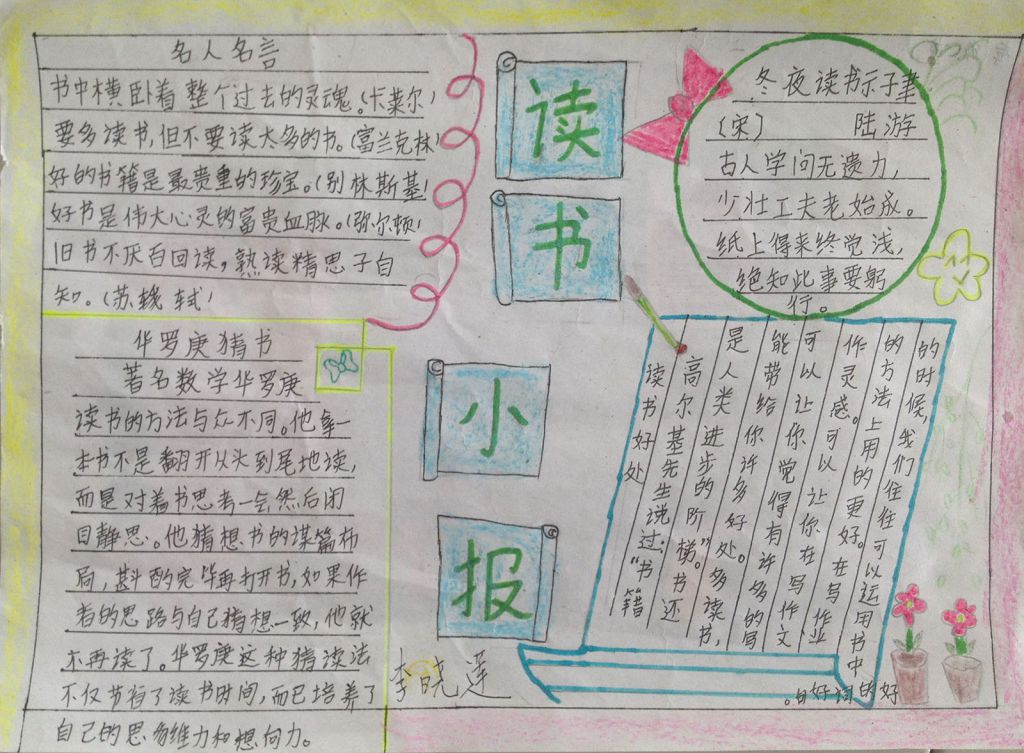 名人名言
书中横卧着整个过去的灵魂。(卡莱尔)
要多读书,但不要读太多的书。(富兰克林)
好的书籍是最贵重的珍宝。(别林斯基)
好书是伟大心灵的富贵血脉。(弥尔顿)
旧书不厌百回读,熟读精思子自
知。(苏轼)
读
书
小
报
冬夜读书示子聿
(宋) 陆游
古人学问无遗力,
少壮工夫老始成。
纸上得来终觉浅,
绝知此事要躬
行。
华罗庚猜书
著名数学华罗庚
读书的方法与众不同。他拿一
本书不是翻开从头到尾地读,
而是对着书思考一会然后闭
目静思。他猜想书的谋篇布
局,斟酌完毕再打开书,如果作
者的思路与自己猜想一致,他就
不再读了。华罗庚这种猜读法
不仅节省了读书时间,而已培养了
自己的思维力和想向力。
读书好处
高尔基先生说过:“书籍
是人类进步的阶梯。”书还
能带给你许多好处。多读书,
可以让你觉得有许多的写
作灵感。可以让你在写作文
的方法上用的更好。在写作业
的时候,我们住住可以运用书中
的好词好
李晓遥